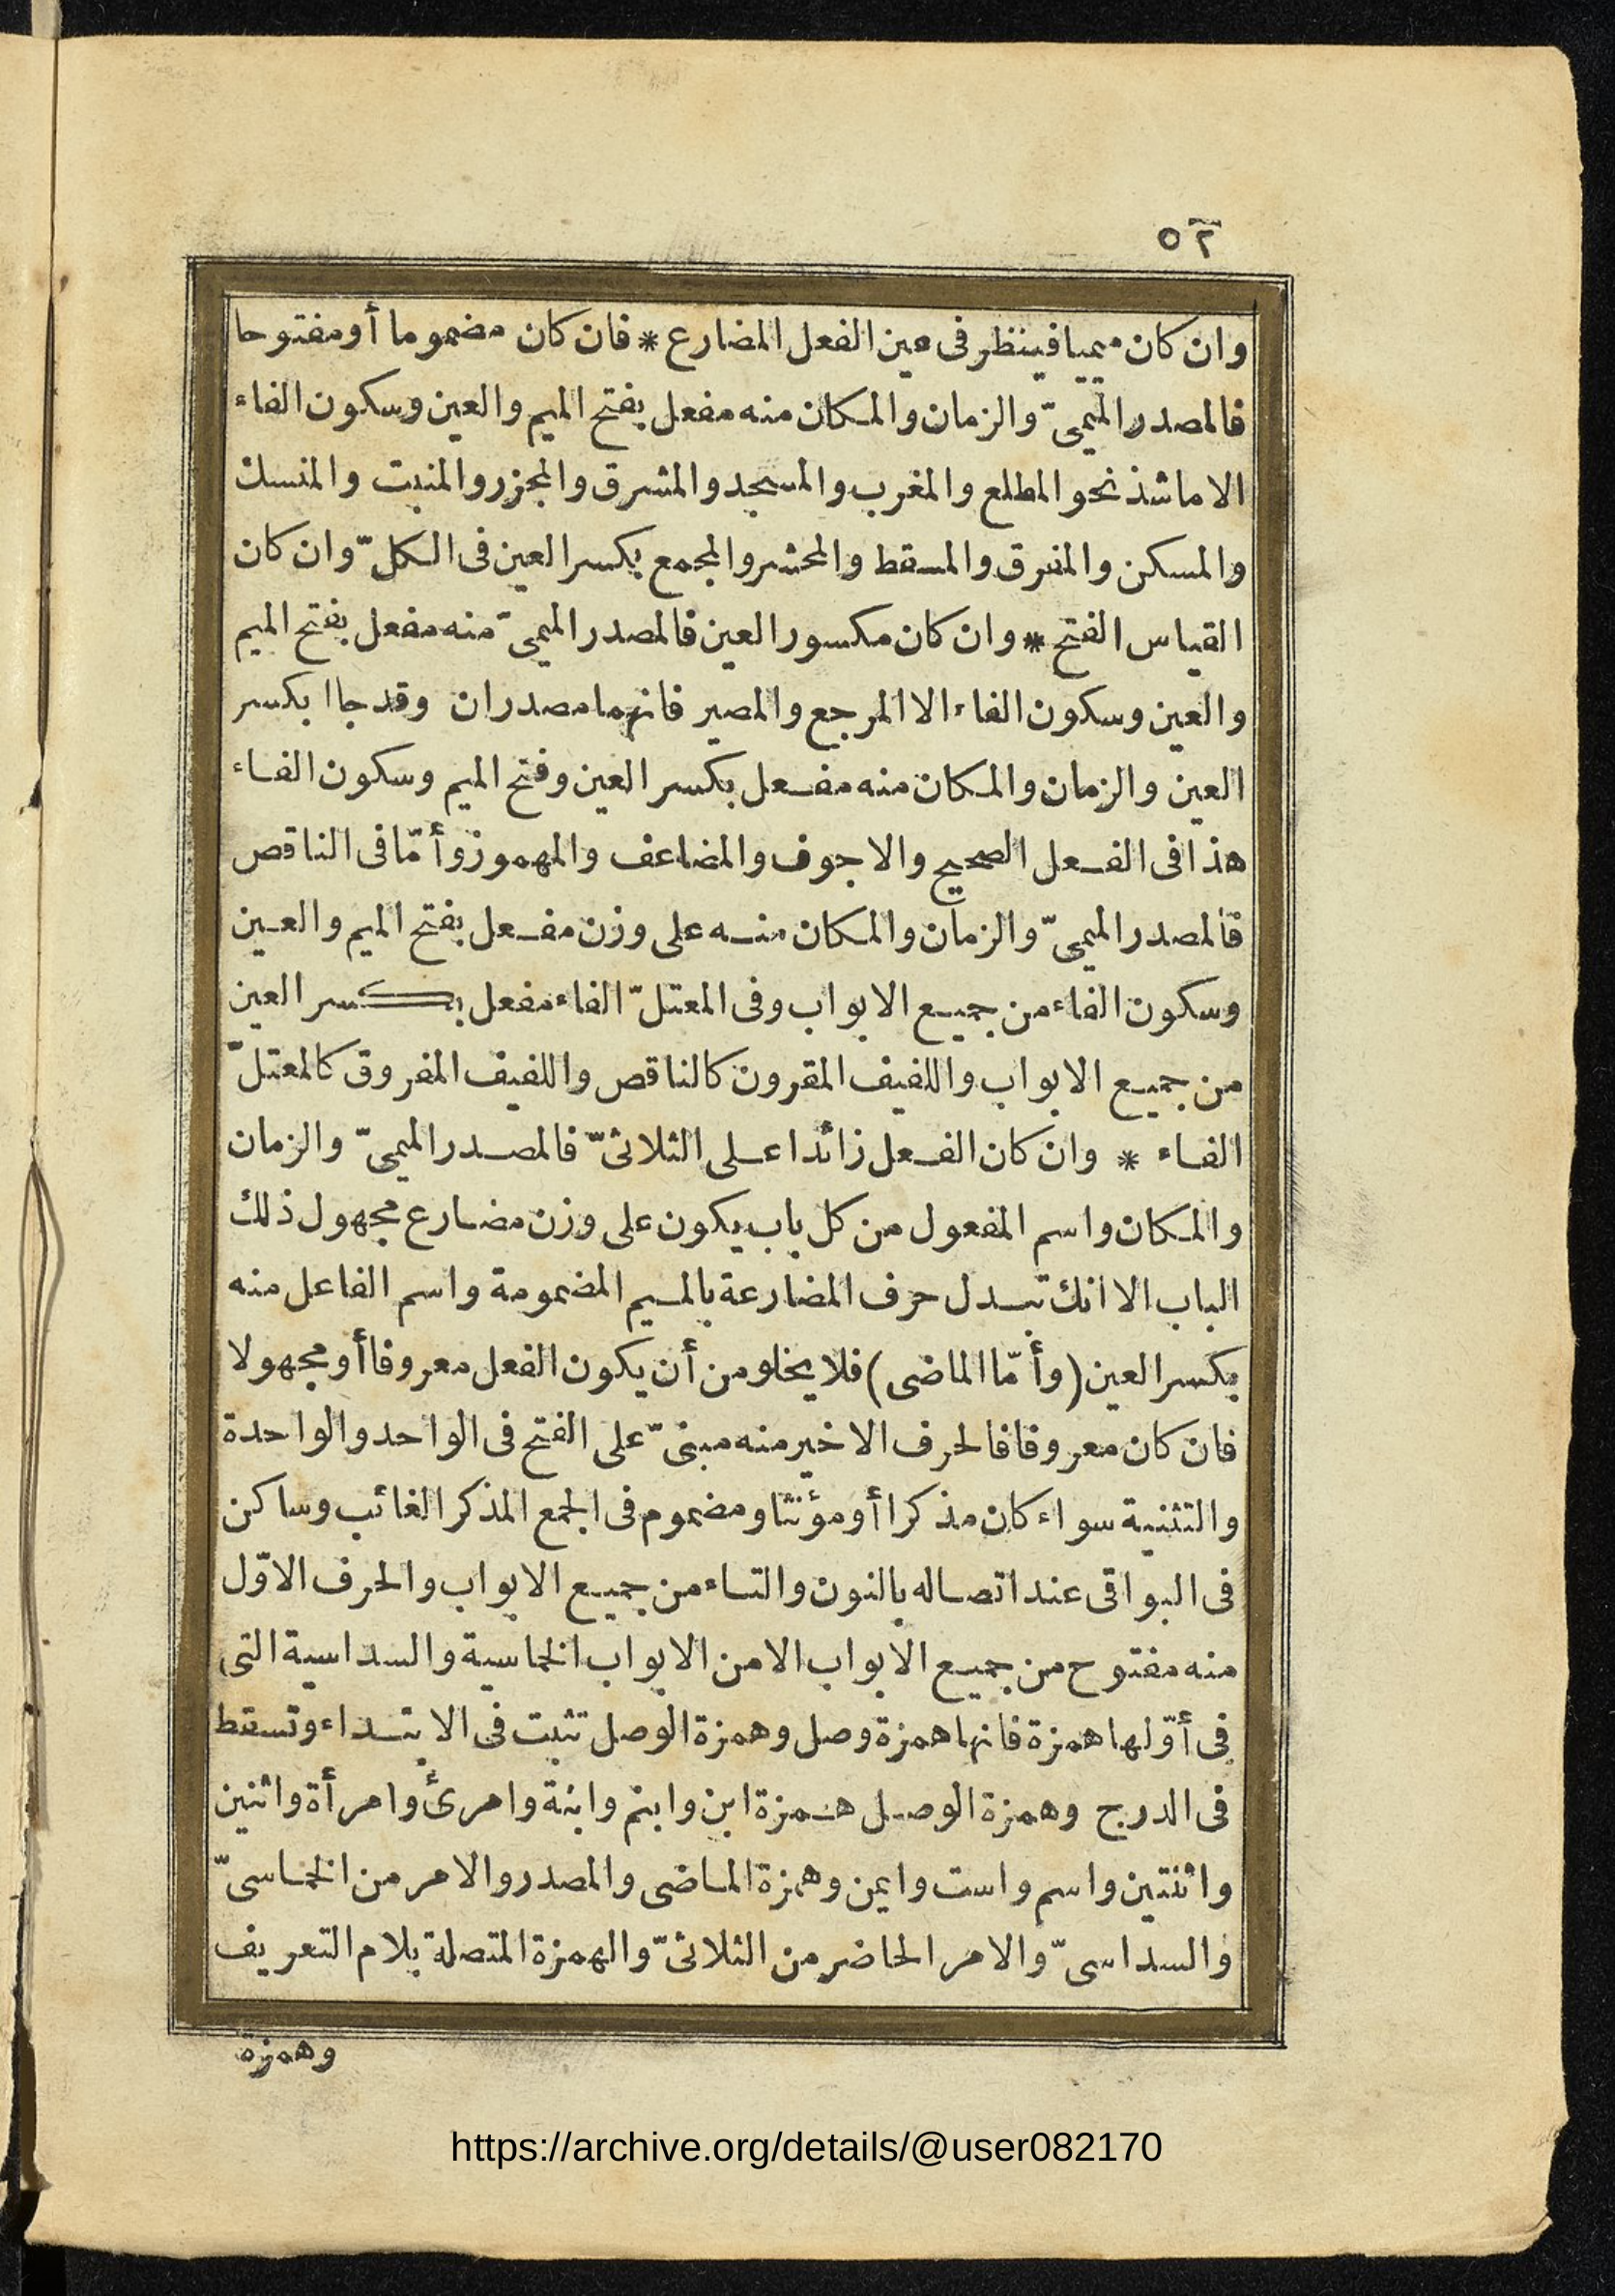 ٥٢
وان كان ميميا فينظر فى عين الفعل المضارع * فان كان مضموما أو مفتوحا
فالمصدر الميمىّ والزمان والمكان منه مفعل بفتح الميم والعين وسكون الفاء
الا ما شذ نحو المطلع والمغرب والمسجد والمشرق والمجزر والمنبت والمنسك
والمسكن والمفرق والمسقط والمحشر والمجمع بكسر العين فى الكلّ وان كان
القياس الفتح * وان كان مكسور العين فالمصدر الميمىّ منه مفعل بفتح الميم
والعين وسكون الفاء الا المرجع والمصير فانهما مصدران وقد جاا بكسر
العين والزمان والمكان منه مفعل بكسر العين وفتح الميم وسكون الفاء
هذا فى الفعل الصحيح والاجوف والمضاعف والمهموز وأمّا فى الناقص
فالمصدر الميمىّ والزمان والمكان منه على وزن مفعل بفتح الميم والعين
وسكون الفاء من جميع الابواب وفى المعتلّ الفاء مفعل بكسر العين
من جميع الابواب واللفيف المقرون كالناقص واللفيف المفروق كالمعتلّ
الفاء * وان كان الفعل زائدا على الثلاثىّ فالمصدر الميمىّ والزمان
والمكان واسم المفعول من كل باب يكون على وزن مضارع مجهول ذلك
الباب الا انك تبدل حرف المضارعة بالميم المضمومة واسم الفاعل منه
بكسر العين (وأمّا الماضى) فلا يخلو من أن يكون الفعل معروفا أو مجهولا
فان كان معروفا فالحرف الاخير منه مبنىّ على الفتح فى الواحد والواحدة
والتثنية سواء كان مذكرا أو مؤنثا ومضموم فى الجمع المذكر الغائب وساكن
فى البواقى عند اتصاله بالنون والتاء من جميع الابواب والحرف الاوّل
منه مفتوح من جميع الابواب الا من الابواب الخماسية والسداسية التى
فى أوّلها همزة فانها همزة وصل وهمزة الوصل تثبت فى الابتداء وتسقط
فى الدرج وهمزة الوصل همزة ابن وابنم وابنة وامرئ وامرأة واثنين
واثنتين واسم واست وايمن وهمزة الماضى والمصدر والامر من الخماسىّ
والسداسىّ والامر الحاضر من الثلاثىّ والهمزة المتصلة بلام التعريف
وهمزة
https://archive.org/details/@user082170